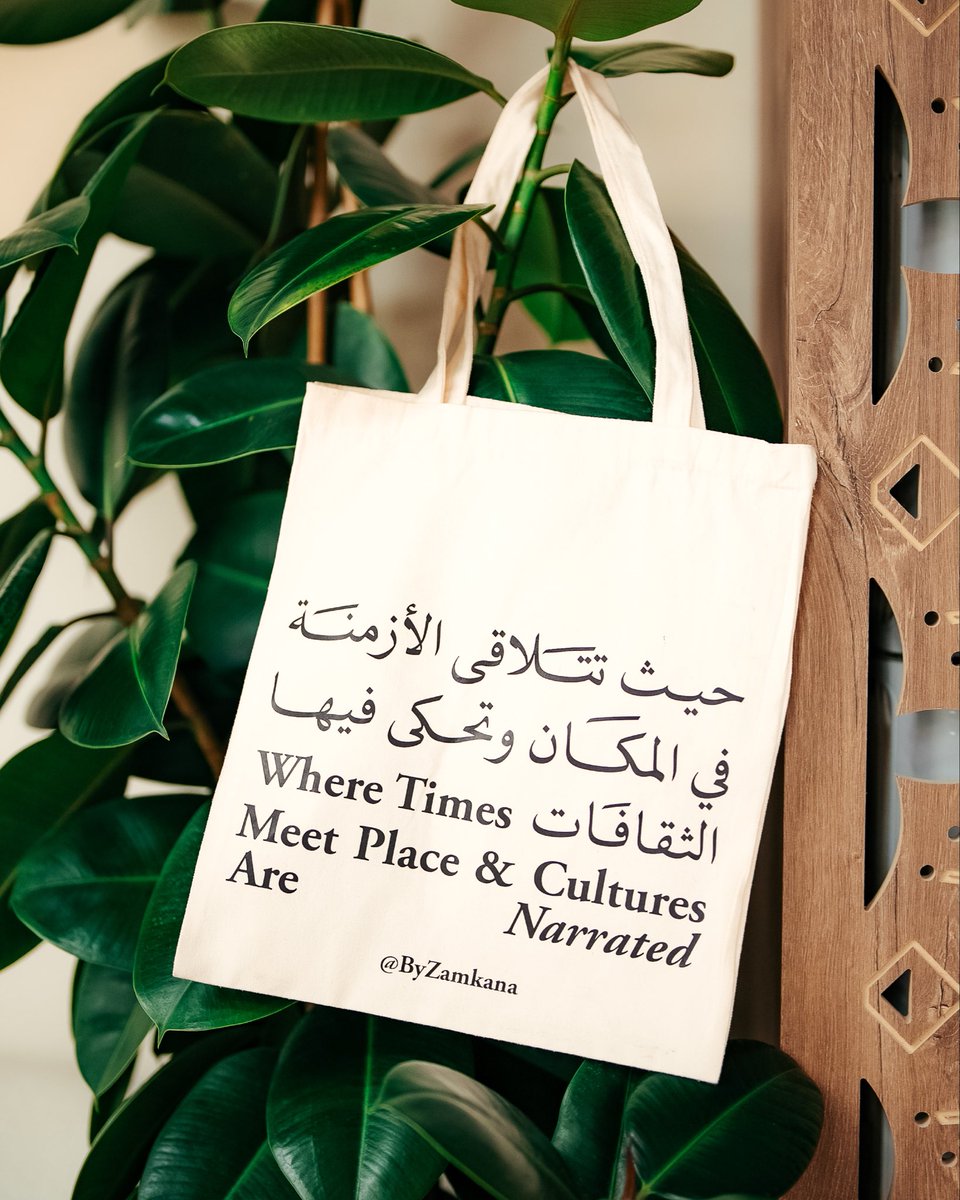 حيث تتلاقى الأزمنة
في المكان وتحكى فيها
الثقافات
Where Times
Meet Place & Cultures
Are
Narrated
@ByZamkana